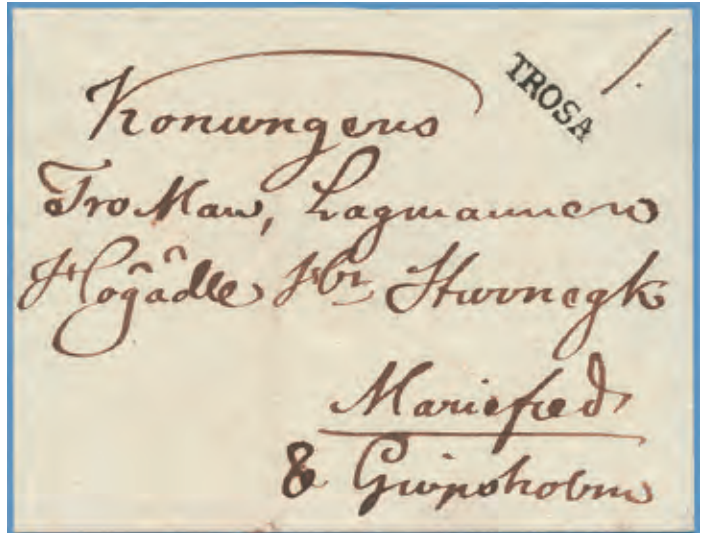 TROSA
1.
Konungens
Tro Man, Lagmannen
Högädle Hr
Mariefred
& Gripsholm